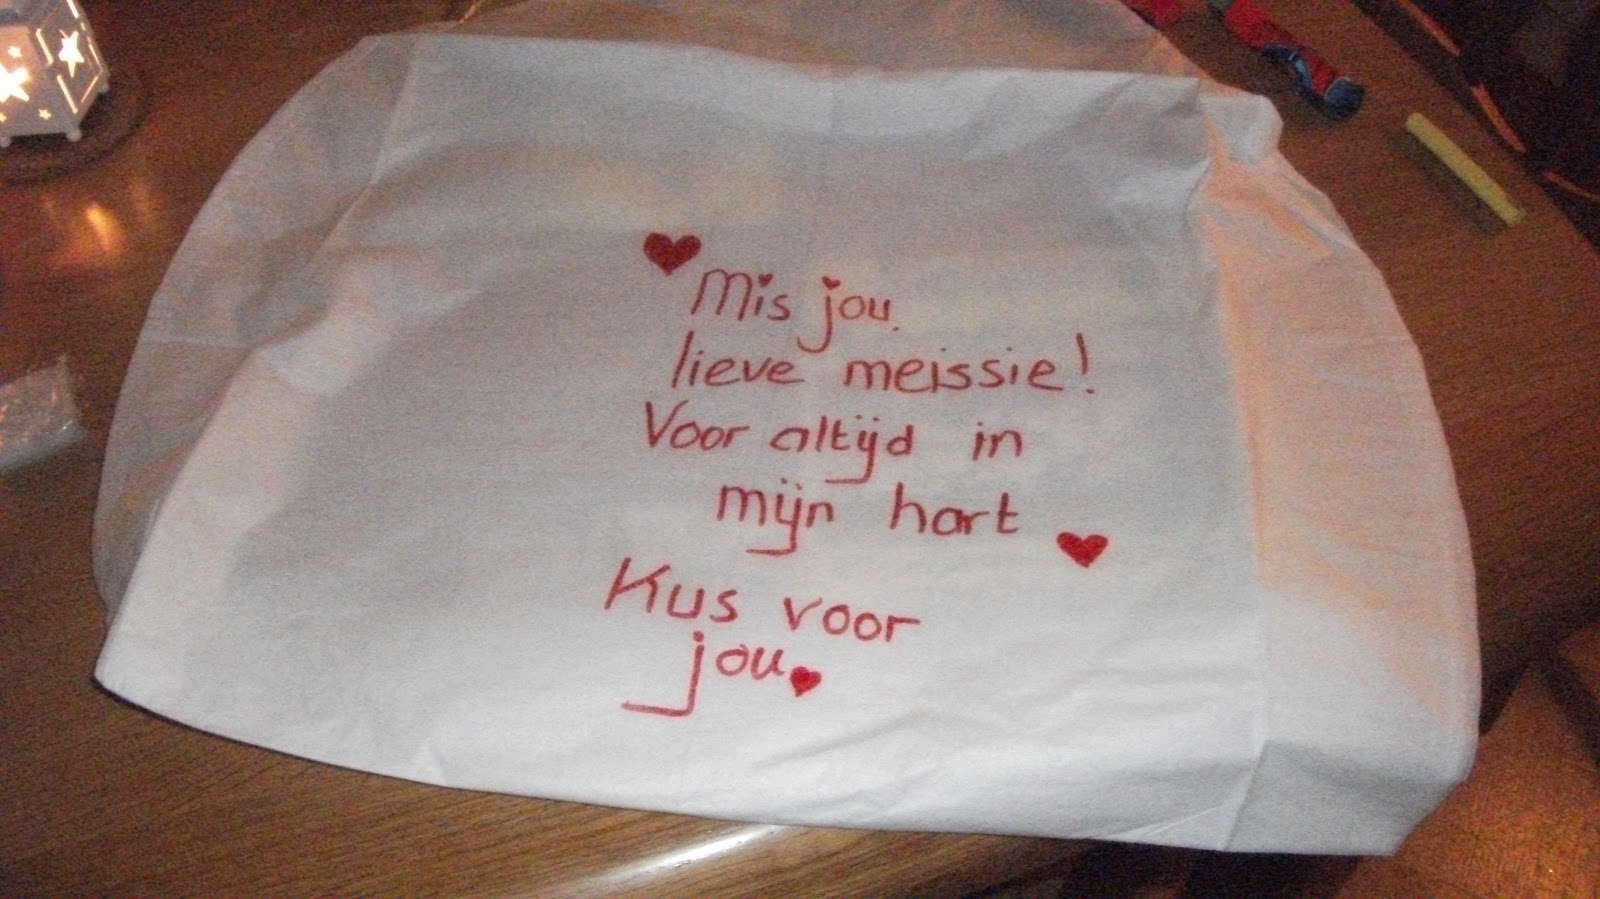 Mis jou.
lieve meissie!
Voor altijd in
mijn hart
Kus voor
jou